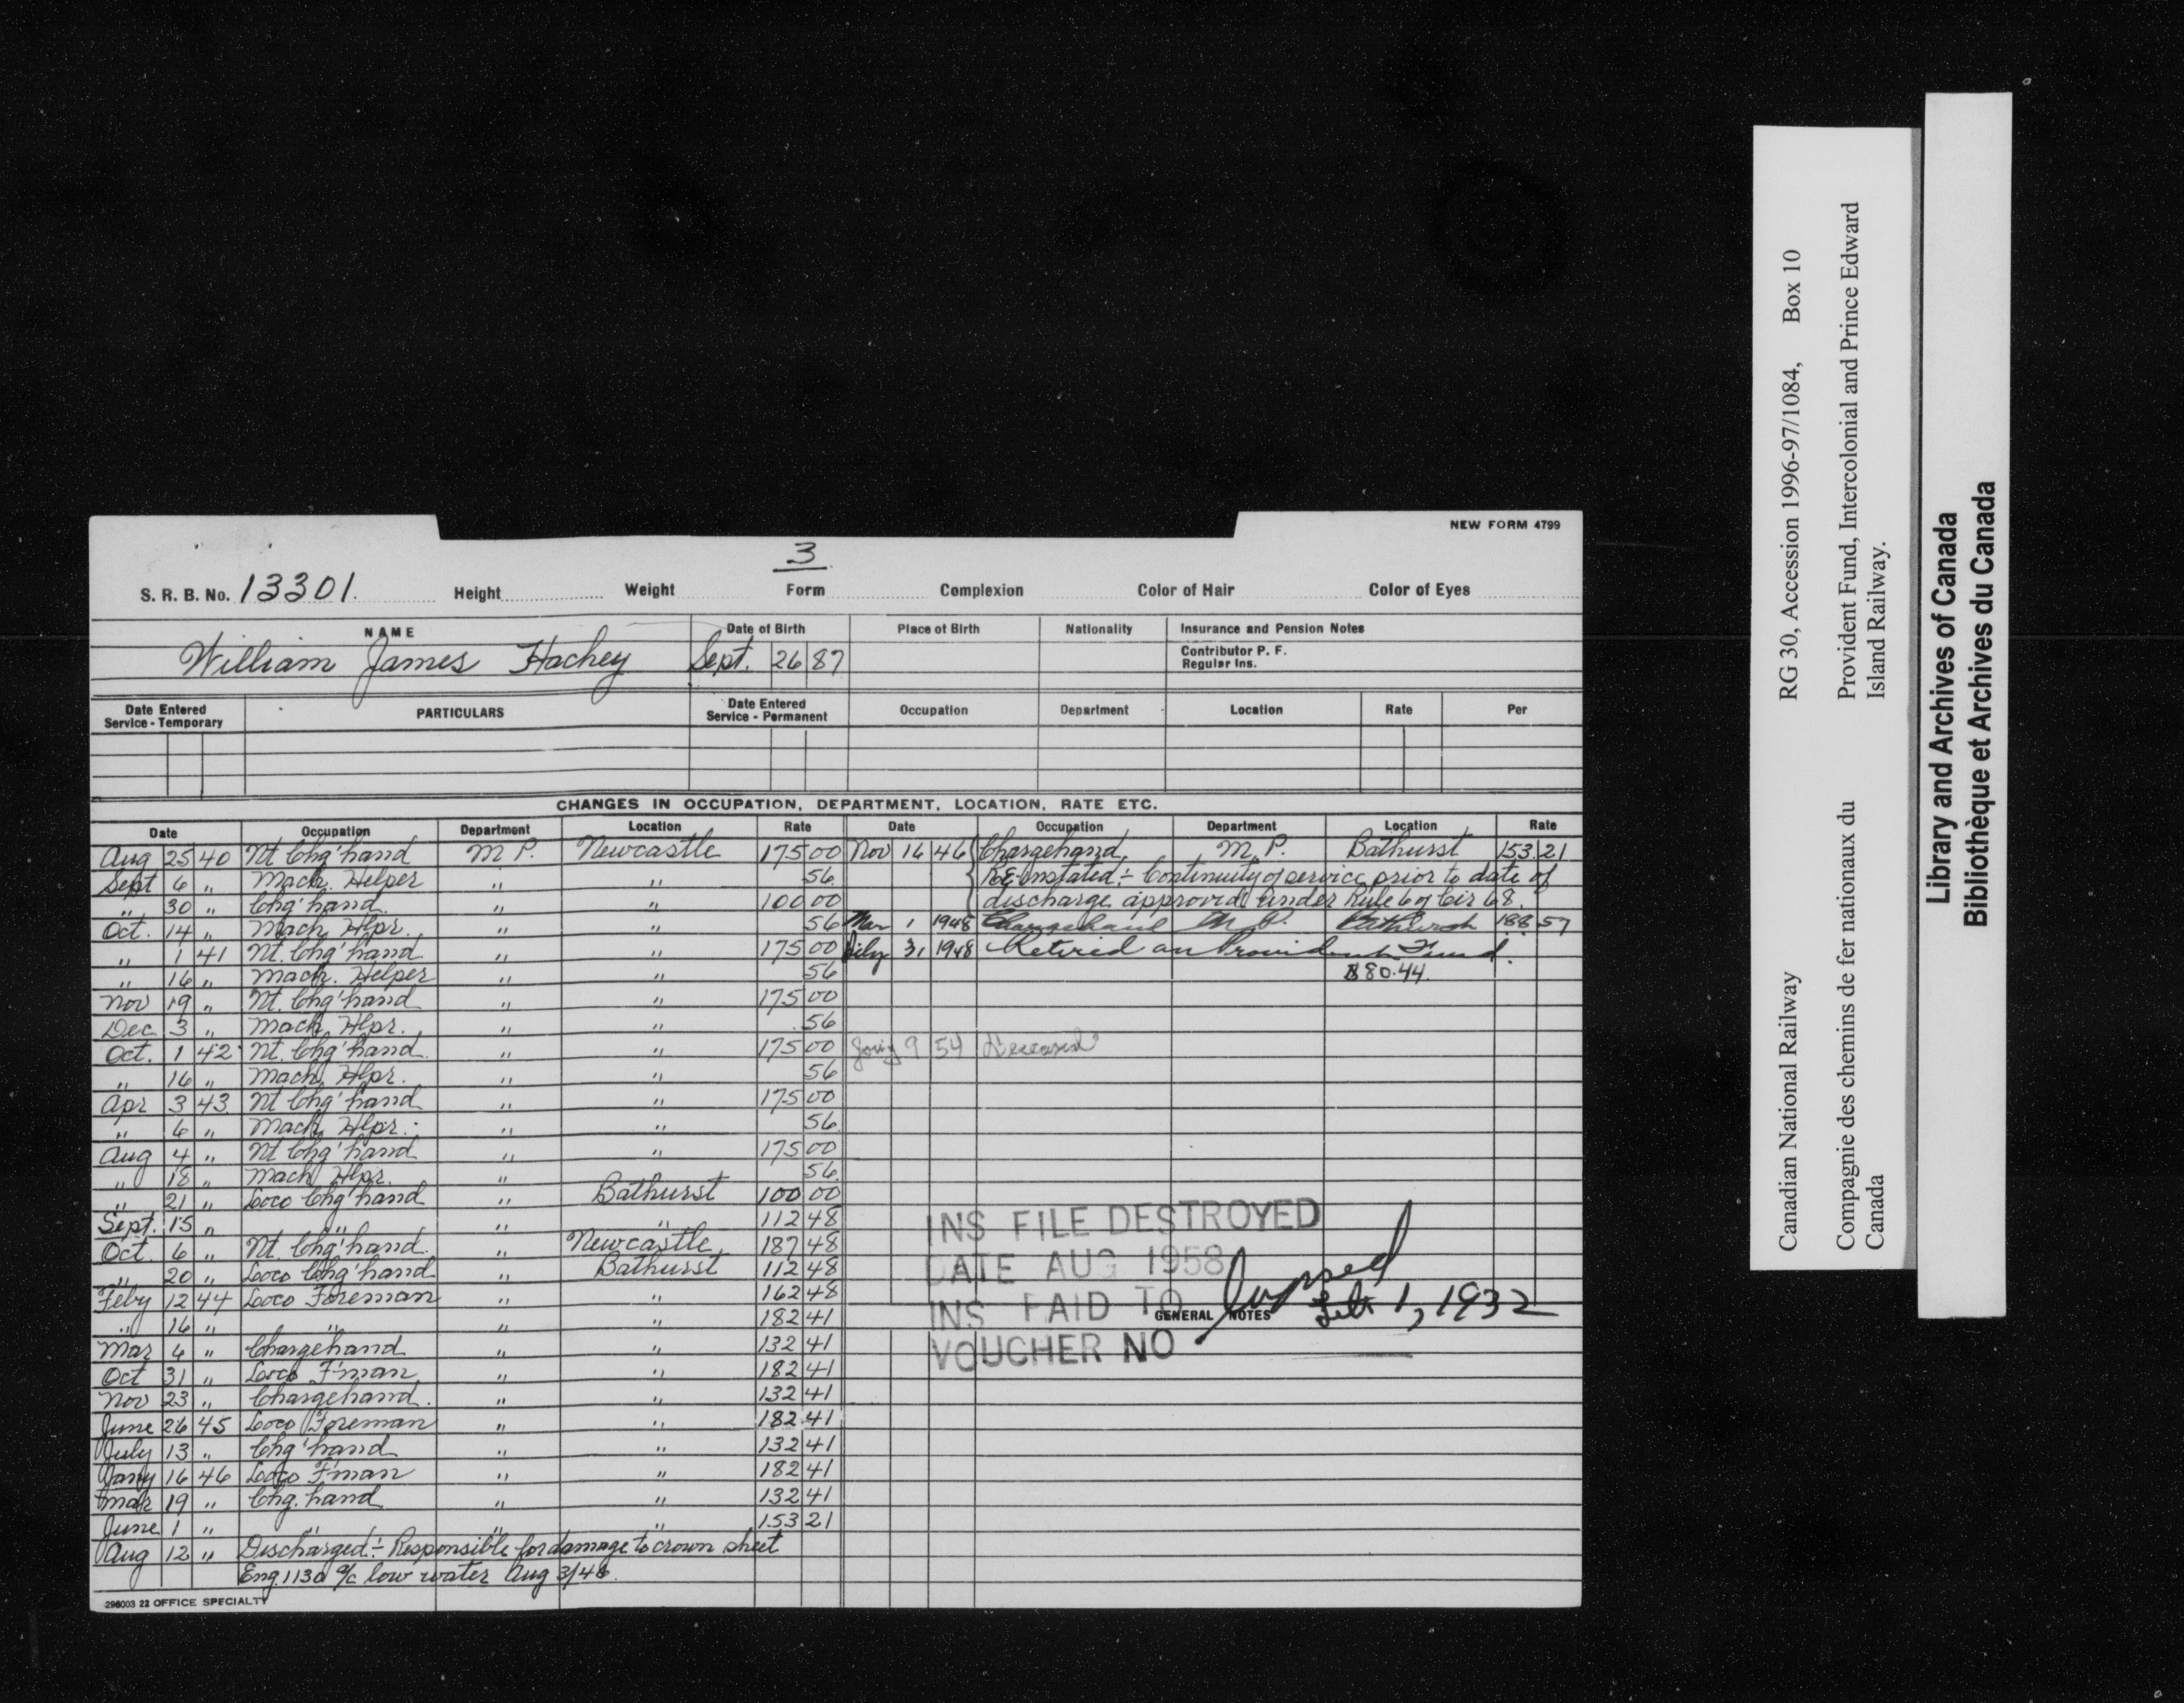 NEW FORM 4799
3
S. R. B. No. 13301. Height Weight Form Complexion Color of Hair Color of Eyes
NAME Date of Birth Place of Birth Nationality Insurance and Pension Notes
William James Hachey Sept. 26 87 Contributor P. F.
Regular Ins.
Date Entered Service - Temporary PARTICULARS Date Entered Service - Permanent Occupation Department Location Rate Per
CHANGES IN OCCUPATION, DEPARTMENT, LOCATION, RATE ETC.
Date Occupation Department Location Rate Date Occupation Department Location Rate
Aug 25 40 Nt Chg'hand M P. Newcastle 175 00
Sept 6 " Mach. Helper " " 56
" 30 " Chg'hand " " 100 00
Oct. 14 " Mach. Hlpr. " " 56
" 1 41 Nt. Chg'hand " " 175 00
" 16 " Mach. Helper " " 56
Nov 19 " Nt. Chg'hand " " 175 00
Dec 3 " Mach. Hlpr. " " .56
Oct. 1 42 Nt. Chg'hand " " 175 00
" 16 " Mach. Hlpr. " " 56
Apr 3 43 Nt Chg'hand " " 175 00
" 6 " Mach. Hlpr. " " 56
Aug 4 " Nt Chg'hand " " 175 00
" 18 " Mach Hlpr. " 56
" 21 " Loco Chg'hand " Bathurst 100 00
Sept. 15 " " " " 112 48
Oct. 6 " Nt. Chg'hand " Newcastle 187 48
" 20 " Loco Chg'hand " Bathurst 112 48
Feby 12 44 Loco Foreman " " 162 48
" 16 " " " " 182 41
Mar 6 " Chargehand " " 132 41
Oct 31 " Loco F'man " " 182 41
Nov 23 " Chargehand. " " 132 41
June 26 45 Loco Foreman " " 182 41
July 13 " Chg'hand " " 132 41
Jany 16 46 Loco F'man " " 182 41
Mar 19 " Chg. hand " " 132 41
June 1 " " " " 153 21
Aug 12 " Discharged:- Responsible for damage to crown sheet
Eng. 1130 a/c low water Aug 3/46.
Nov 16 46 Chargehand M. P. Bathurst 153.21
Re-instated:- Continuity of service prior to date of
discharge approved under Rule 6 of Cir 68.
Mar 1 1948 Chargehand M. P. Bathurst 188 57
July 31 1948 Retired on Provident Fund.
$80.44.
9 54 Deceased
INS FILE DESTROYED
DATE AUG 1958
INS PAID TO
VOUCHER NO
GENERAL NOTES
Lapsed
Feb 1, 1932
296003 22 OFFICE SPECIALTY
Canadian National Railway RG 30, Accession 1996-97/1084, Box 10
Compagnie des chemins de fer nationaux du Canada
Provident Fund, Intercolonial and Prince Edward Island Railway.
Library and Archives of Canada
Bibliothèque et Archives du Canada